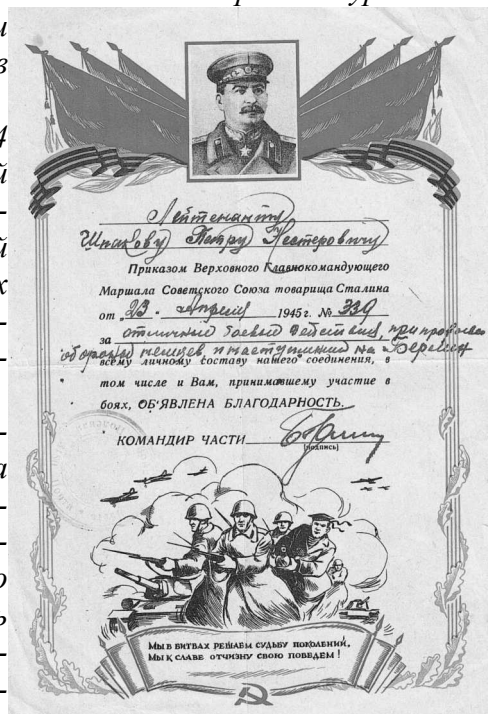 Лейтенанту
Шпакову Петру Нестеровичу
Приказом Верховного Главнокомандующего
Маршала Советского Союза товарища Сталина
от "23" Апреля 1945 г. № 339
за отличные боевые действия, при прорыве
обороны немцев, и наступлении на Берлин
всему личному составу нашего соединения, в
том числе и Вам, принимавшему участие в
боях, ОБ'ЯВЛЕНА БЛАГОДАРНОСТЬ.
КОМАНДИР ЧАСТИ
(подпись)
МЫ В БИТВАХ РЕШАЕМ СУДЬБУ ПОКОЛЕНИЙ,
МЫ К СЛАВЕ ОТЧИЗНУ СВОЮ ПОВЕДЕМ!